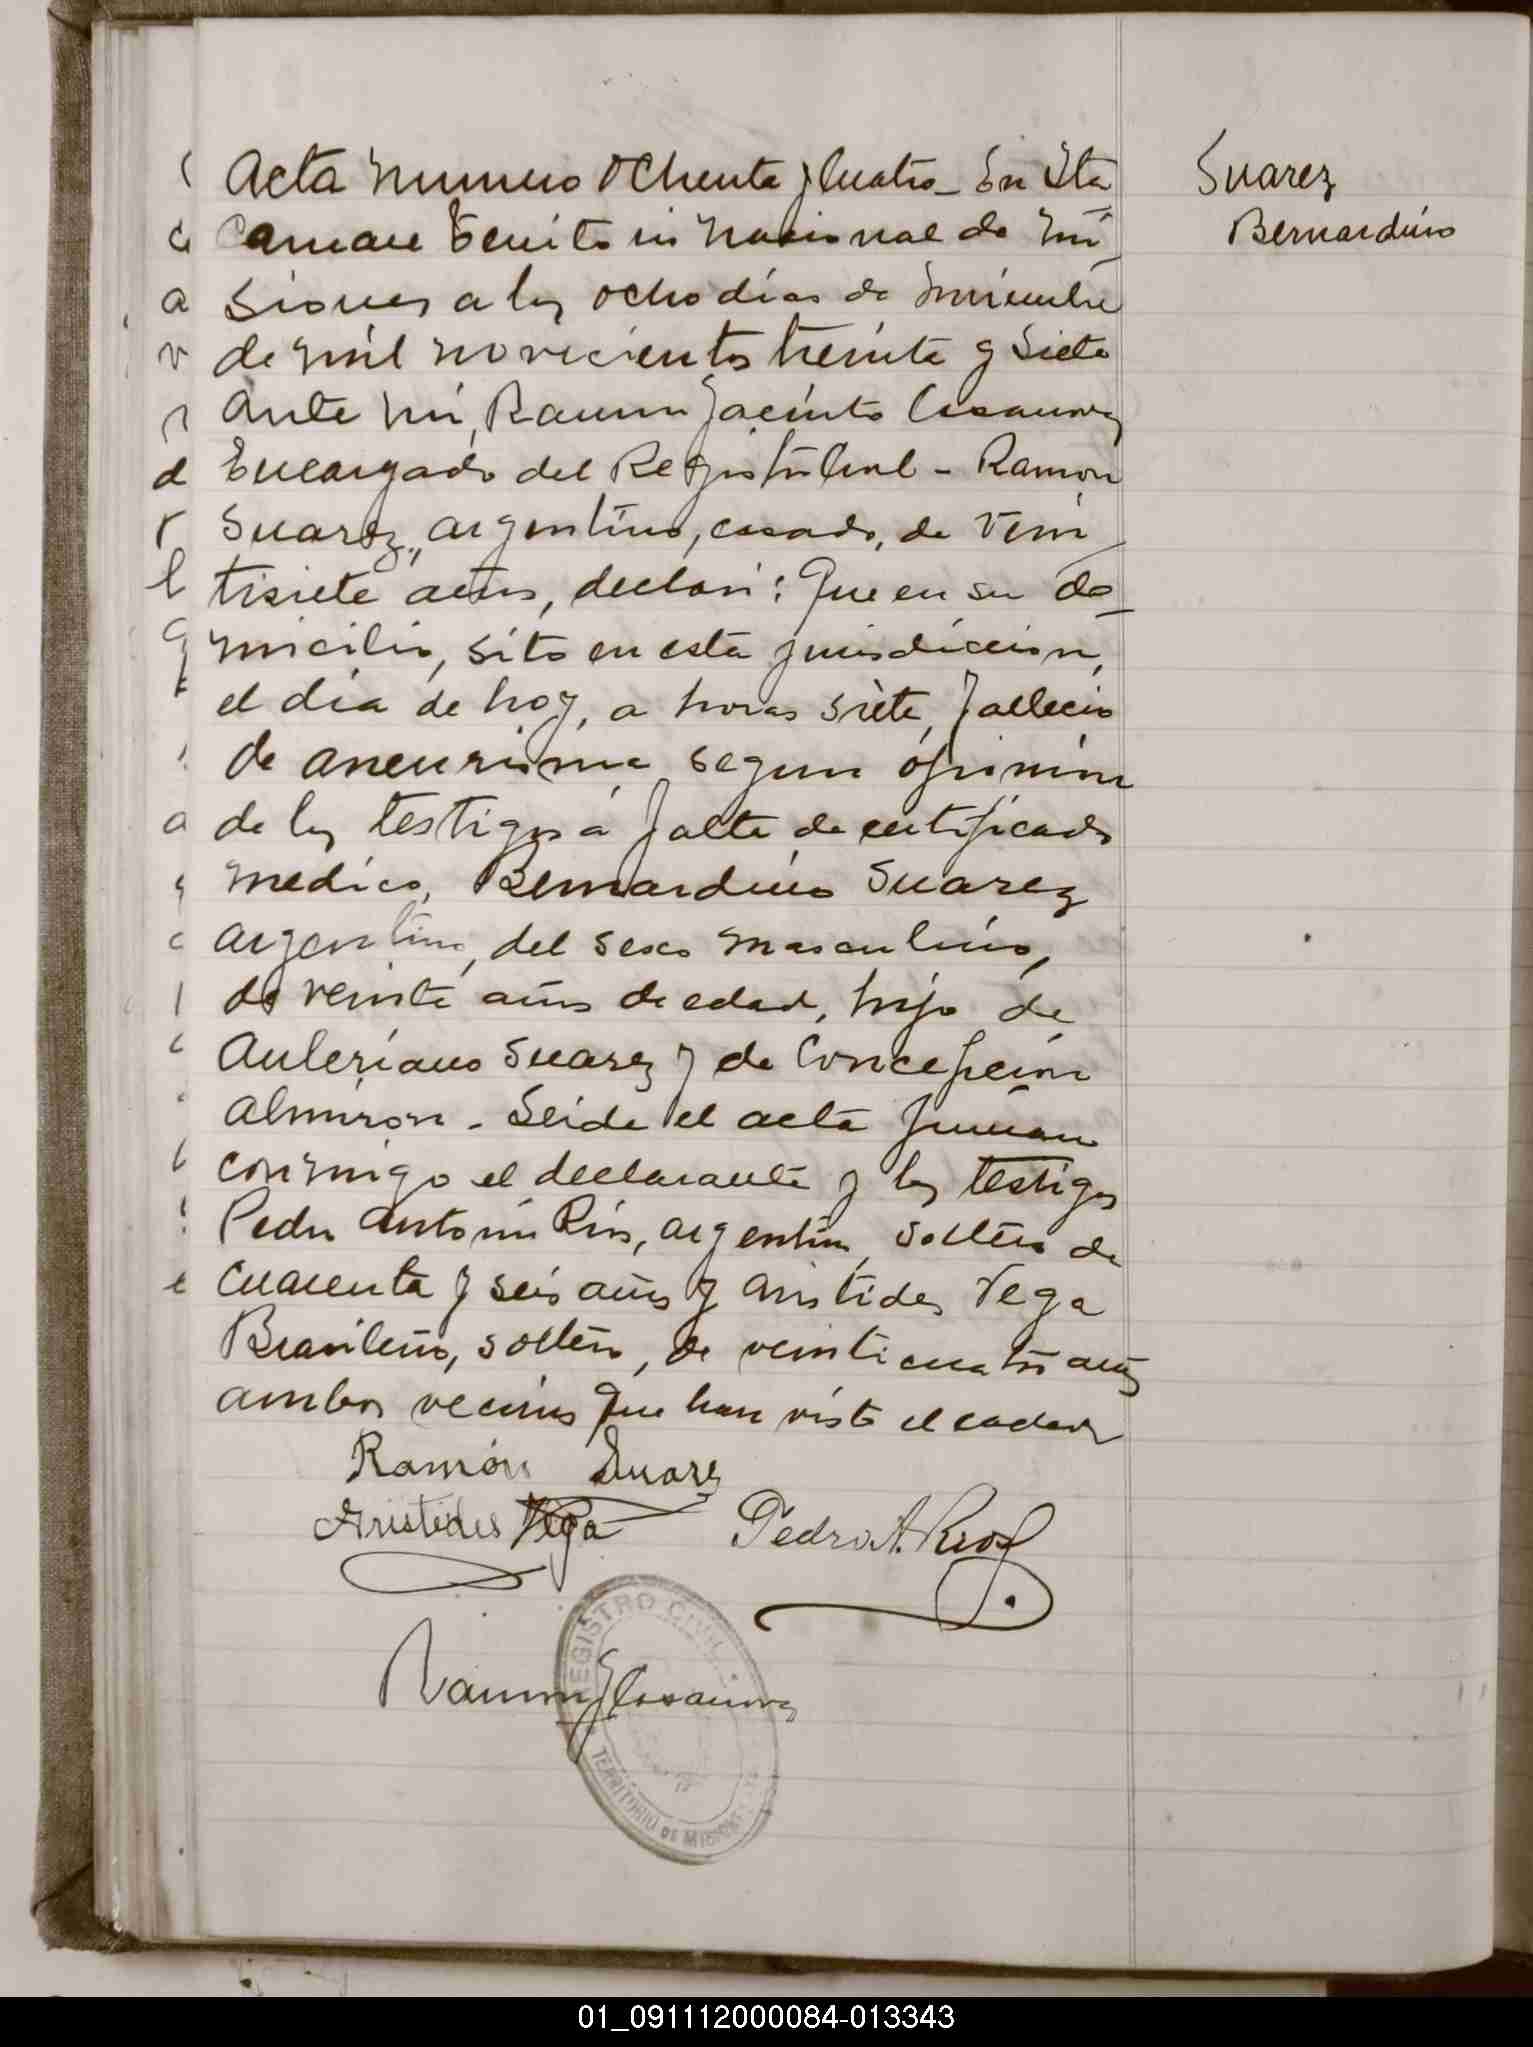 Acta numero ochenta y Cuatro - En Ita
Caruare Territorio Nacional de Mi
siones a los ocho dias de Noviembre
de mil novecientos treinta y siete
ante mi, Ramon Jacinto Casanova
Encargado del Registro Civil - Ramon
Suarez, argentino, casado, de vein
tisiete años, declaró: Que en su do
micilio, sito en esta jurisdiccion,
el dia de hoy, a horas siete, fallecio
de aneurisma segun opinion
de los testigos á falta de certificado
medico, Bernardino Suarez
argentino, del sexo masculino,
de veinte años de edad, hijo de
Auleriano Suarez y de Concepcion
Almiron - Leida el acta firman
conmigo el declarante y los testigos
Pedro Antonio Rios, argentino, soltero de
cuarenta y seis años y Aristides Vega
Brasileño, soltero, de veinticuatro años
ambos vecinos que han visto el cadaver
Suarez
Bernardino
Ramón Suarez
Aristides Vega
Pedro A. Rios
Ramon J Casanova
REGISTRO CIVIL
TERRITORIO DE MISIONES
01_091112000084-013343